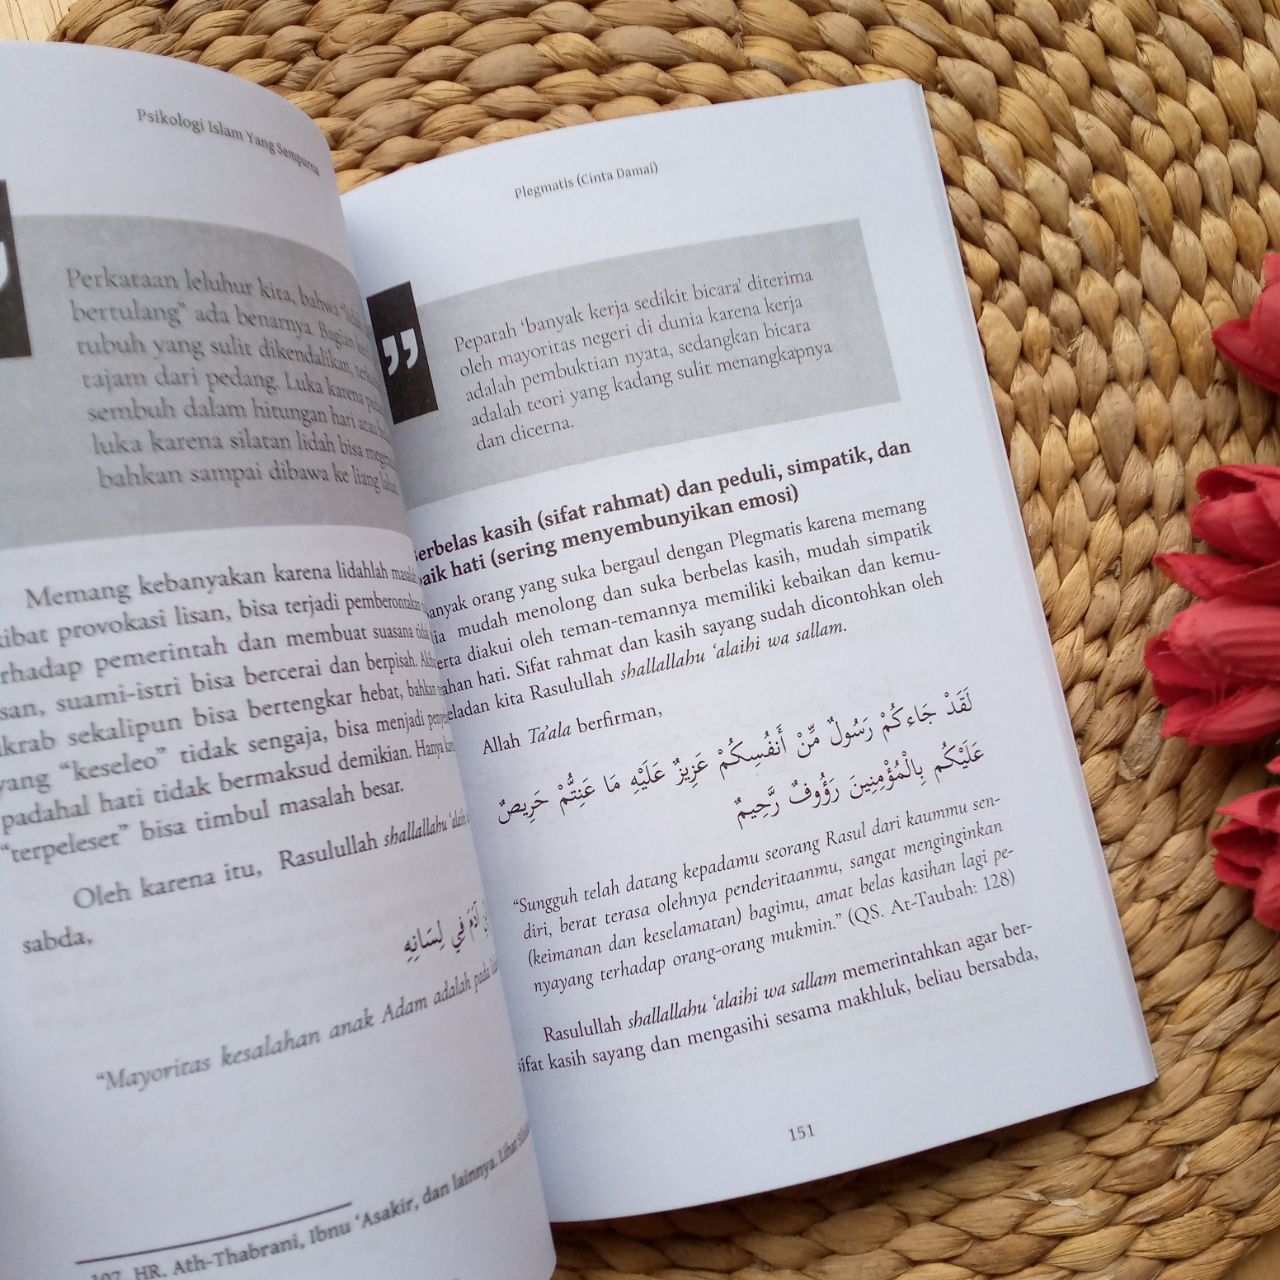 Psikologi Islam Yang Sempurna
Perkataan leluhur kita, bahwa
bertulang” ada benarnya. Bagian
tubuh yang sulit dikendalikan,
tajam dari pedang. Luka karena
sembuh dalam hitungan hari atau
luka karena silatan lidah bisa
bahkan sampai dibawa ke liang
Memang kebanyakan karena lidahlah
provokasi lisan, bisa terjadi pemberontakan
pemerintah dan membuat suasana
suami-istri bisa bercerai dan berpisah.
sekalipun bisa bertengkar hebat, bahkan
yang “keseleo” tidak sengaja, bisa menjadi
padahal hati tidak bermaksud demikian. Hanya
“terpeleset” bisa timbul masalah besar.
Oleh karena itu, Rasulullah shallallahu ‘alaihi
sabda,
آدَمَ فِي لِسَانِهِ
“Mayoritas kesalahan anak Adam adalah pada
107. HR. Ath-Thabrani, Ibnu ‘Asakir, dan lainnya. Lihat
Plegmatis (Cinta Damai)
”
Pepatah ‘banyak kerja sedikit bicara’ diterima
oleh mayoritas negeri di dunia karena kerja
adalah pembuktian nyata, sedangkan bicara
adalah teori yang kadang sulit menangkapnya
dan dicerna.
kasih (sifat rahmat) dan peduli, simpatik, dan
hati (sering menyembunyikan emosi)
orang yang suka bergaul dengan Plegmatis karena memang
mudah menolong dan suka berbelas kasih, mudah simpatik
diakui oleh teman-temannya memiliki kebaikan dan kemu-
hati. Sifat rahmat dan kasih sayang sudah dicontohkan oleh
kita Rasulullah shallallahu ‘alaihi wa sallam.
Allah Ta’ala berfirman,
لَقَدْ جَاءكُمْ رَسُولٌ مِّنْ أَنفُسِكُمْ عَزِيزٌ عَلَيْهِ مَا عَنِتُّمْ حَرِيصٌ
عَلَيْكُم بِالْمُؤْمِنِينَ رَؤُوفٌ رَّحِيمٌ
“Sungguh telah datang kepadamu seorang Rasul dari kaummu sen-
diri, berat terasa olehnya penderitaanmu, sangat menginginkan
(keimanan dan keselamatan) bagimu, amat belas kasihan lagi pe-
nyayang terhadap orang-orang mukmin.” (QS. At-Taubah: 128)
Rasulullah shallallahu ‘alaihi wa sallam memerintahkan agar ber-
sifat kasih sayang dan mengasihi sesama makhluk, beliau bersabda,
151